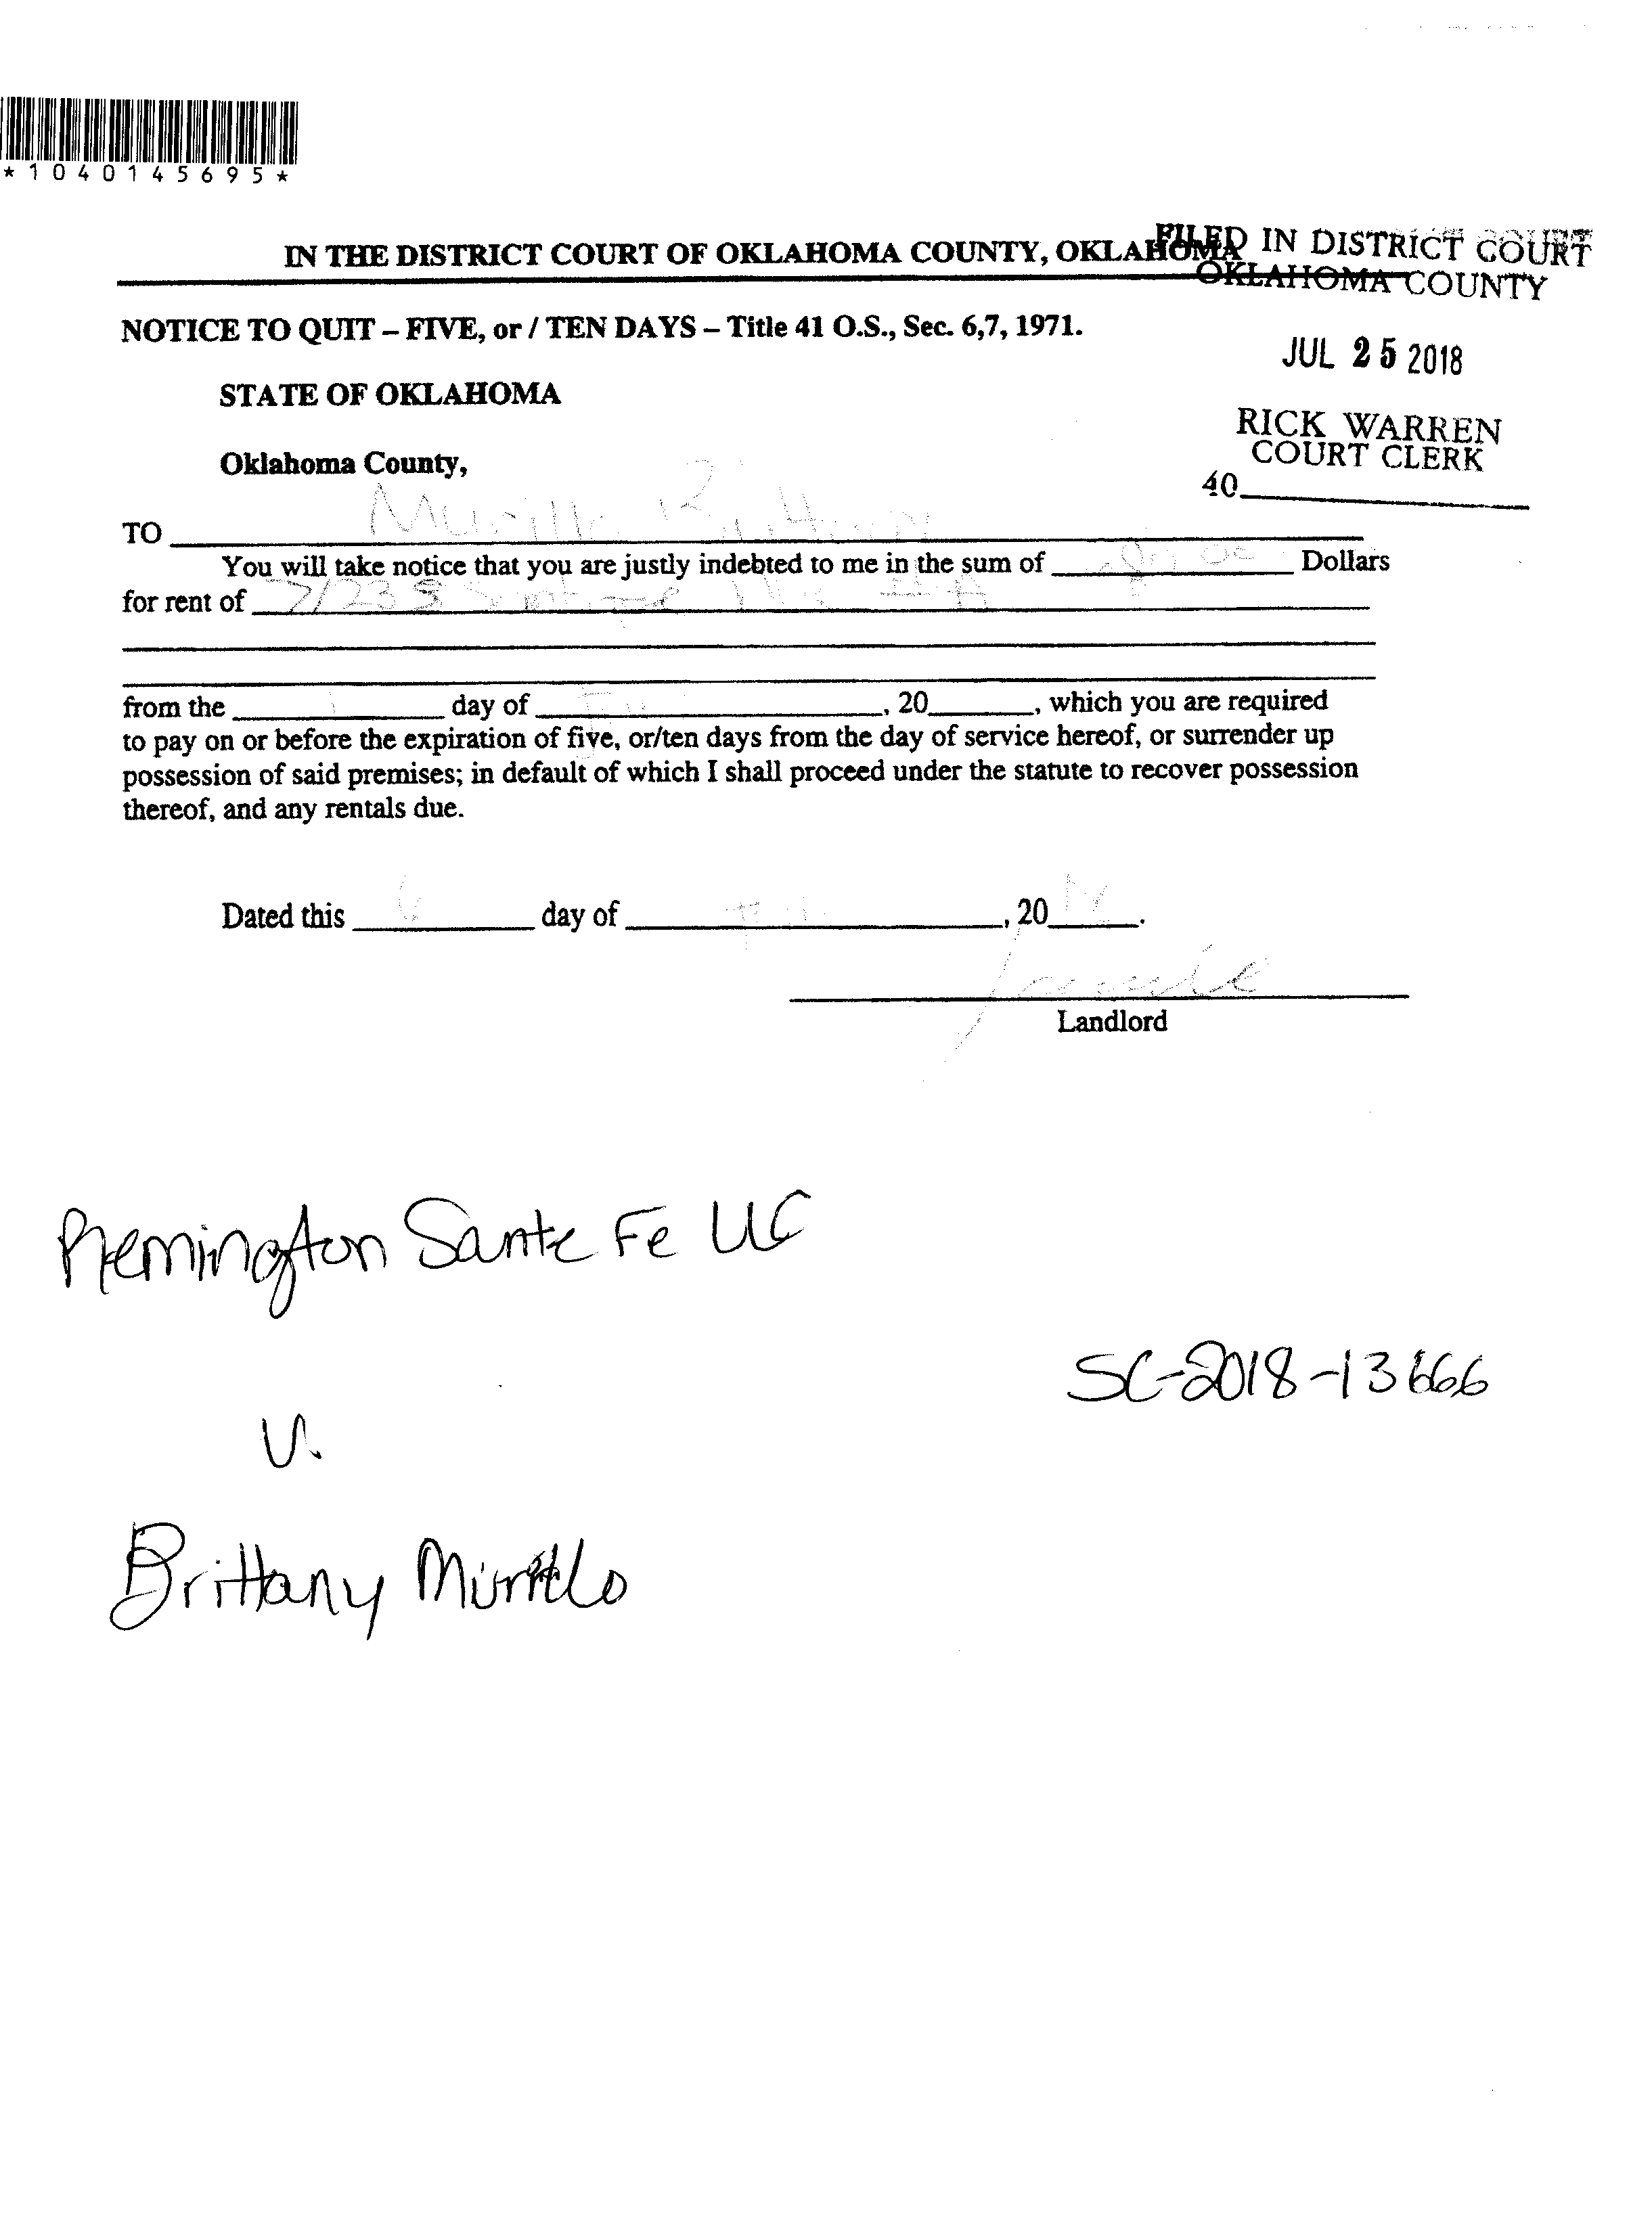 *1040145695*
IN THE DISTRICT COURT OF OKLAHOMA COUNTY, OKLAHOMA
FILED IN DISTRICT COURT
OKLAHOMA COUNTY
NOTICE TO QUIT – FIVE, or / TEN DAYS – Title 41 O.S., Sec. 6,7, 1971.
JUL 25 2018
STATE OF OKLAHOMA
RICK WARREN
COURT CLERK
Oklahoma County,
40
TO Murillo Brittany
You will take notice that you are justly indebted to me in the sum of Dollars
for rent of
from the day of , 20 , which you are required
to pay on or before the expiration of five, or/ten days from the day of service hereof, or surrender up
possession of said premises; in default of which I shall proceed under the statute to recover possession
thereof, and any rentals due.
Dated this day of , 20 .
Landlord
Remington Sante Fe LLC
SC-2018-13666
V.
Brittany Murillo